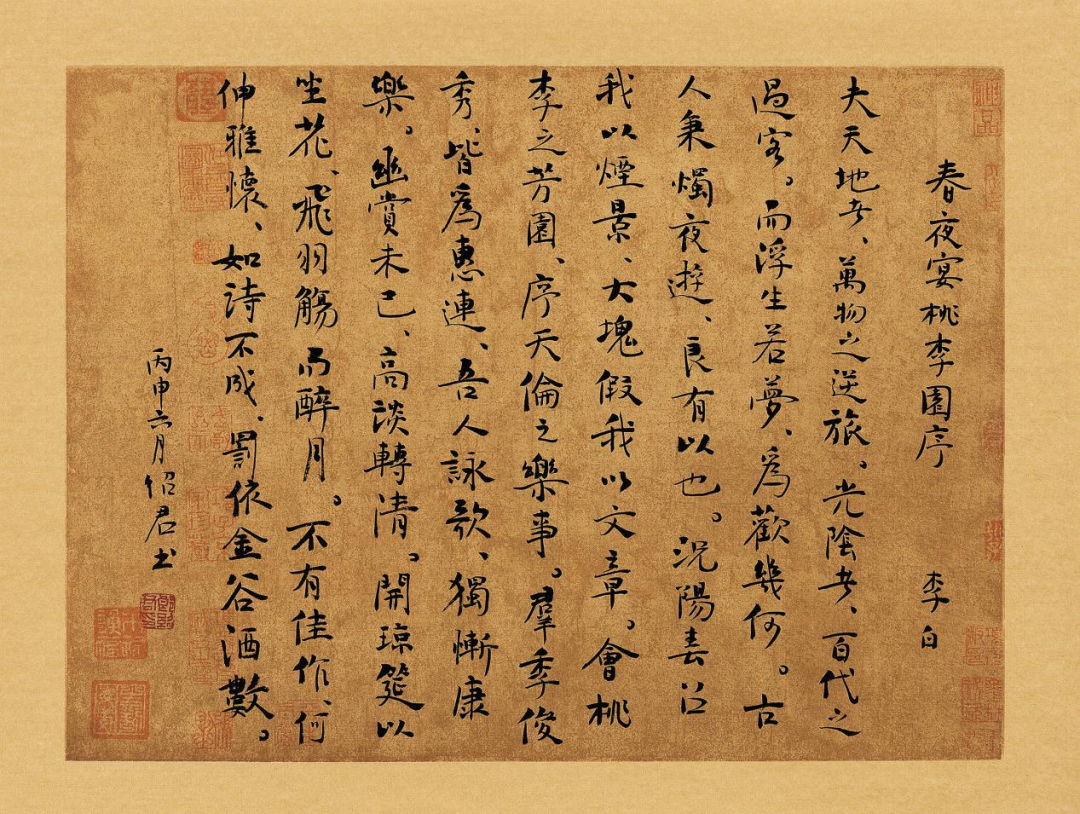 春夜宴桃李園序 李白
夫天地者、萬物之逆旅。光陰者、百代之
過客。而浮生若夢、爲歡幾何。古
人秉燭夜遊、良有以也。況陽春召
我以煙景、大塊假我以文章。會桃
李之芳園、序天倫之樂事。羣季俊
秀、皆爲惠連、吾人詠歌、獨慚康
樂。幽賞未已、高談轉清。開琼筵以
坐花、飛羽觴而醉月。不有佳作、何
伸雅懷、如詩不成、罰依金谷酒數。
丙申六月紹君书